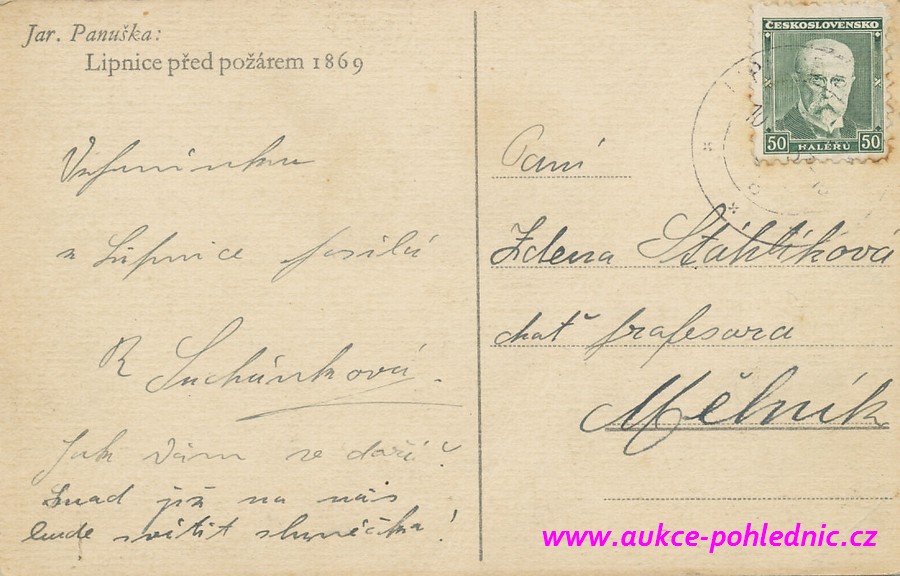 Jar. Panuška:
Lipnice před požárem 1869
Vzpomínku
z Lipnice posílá
R Suchánková.
Jak Vám se daří?
Snad již na nás
bude svítit sluníčko!
ČESKOSLOVENSKO
50 HALÉŘŮ 50
Paní
Zdena Stáhlíková
choť profesora
Mělník
www.aukce-pohlednic.cz